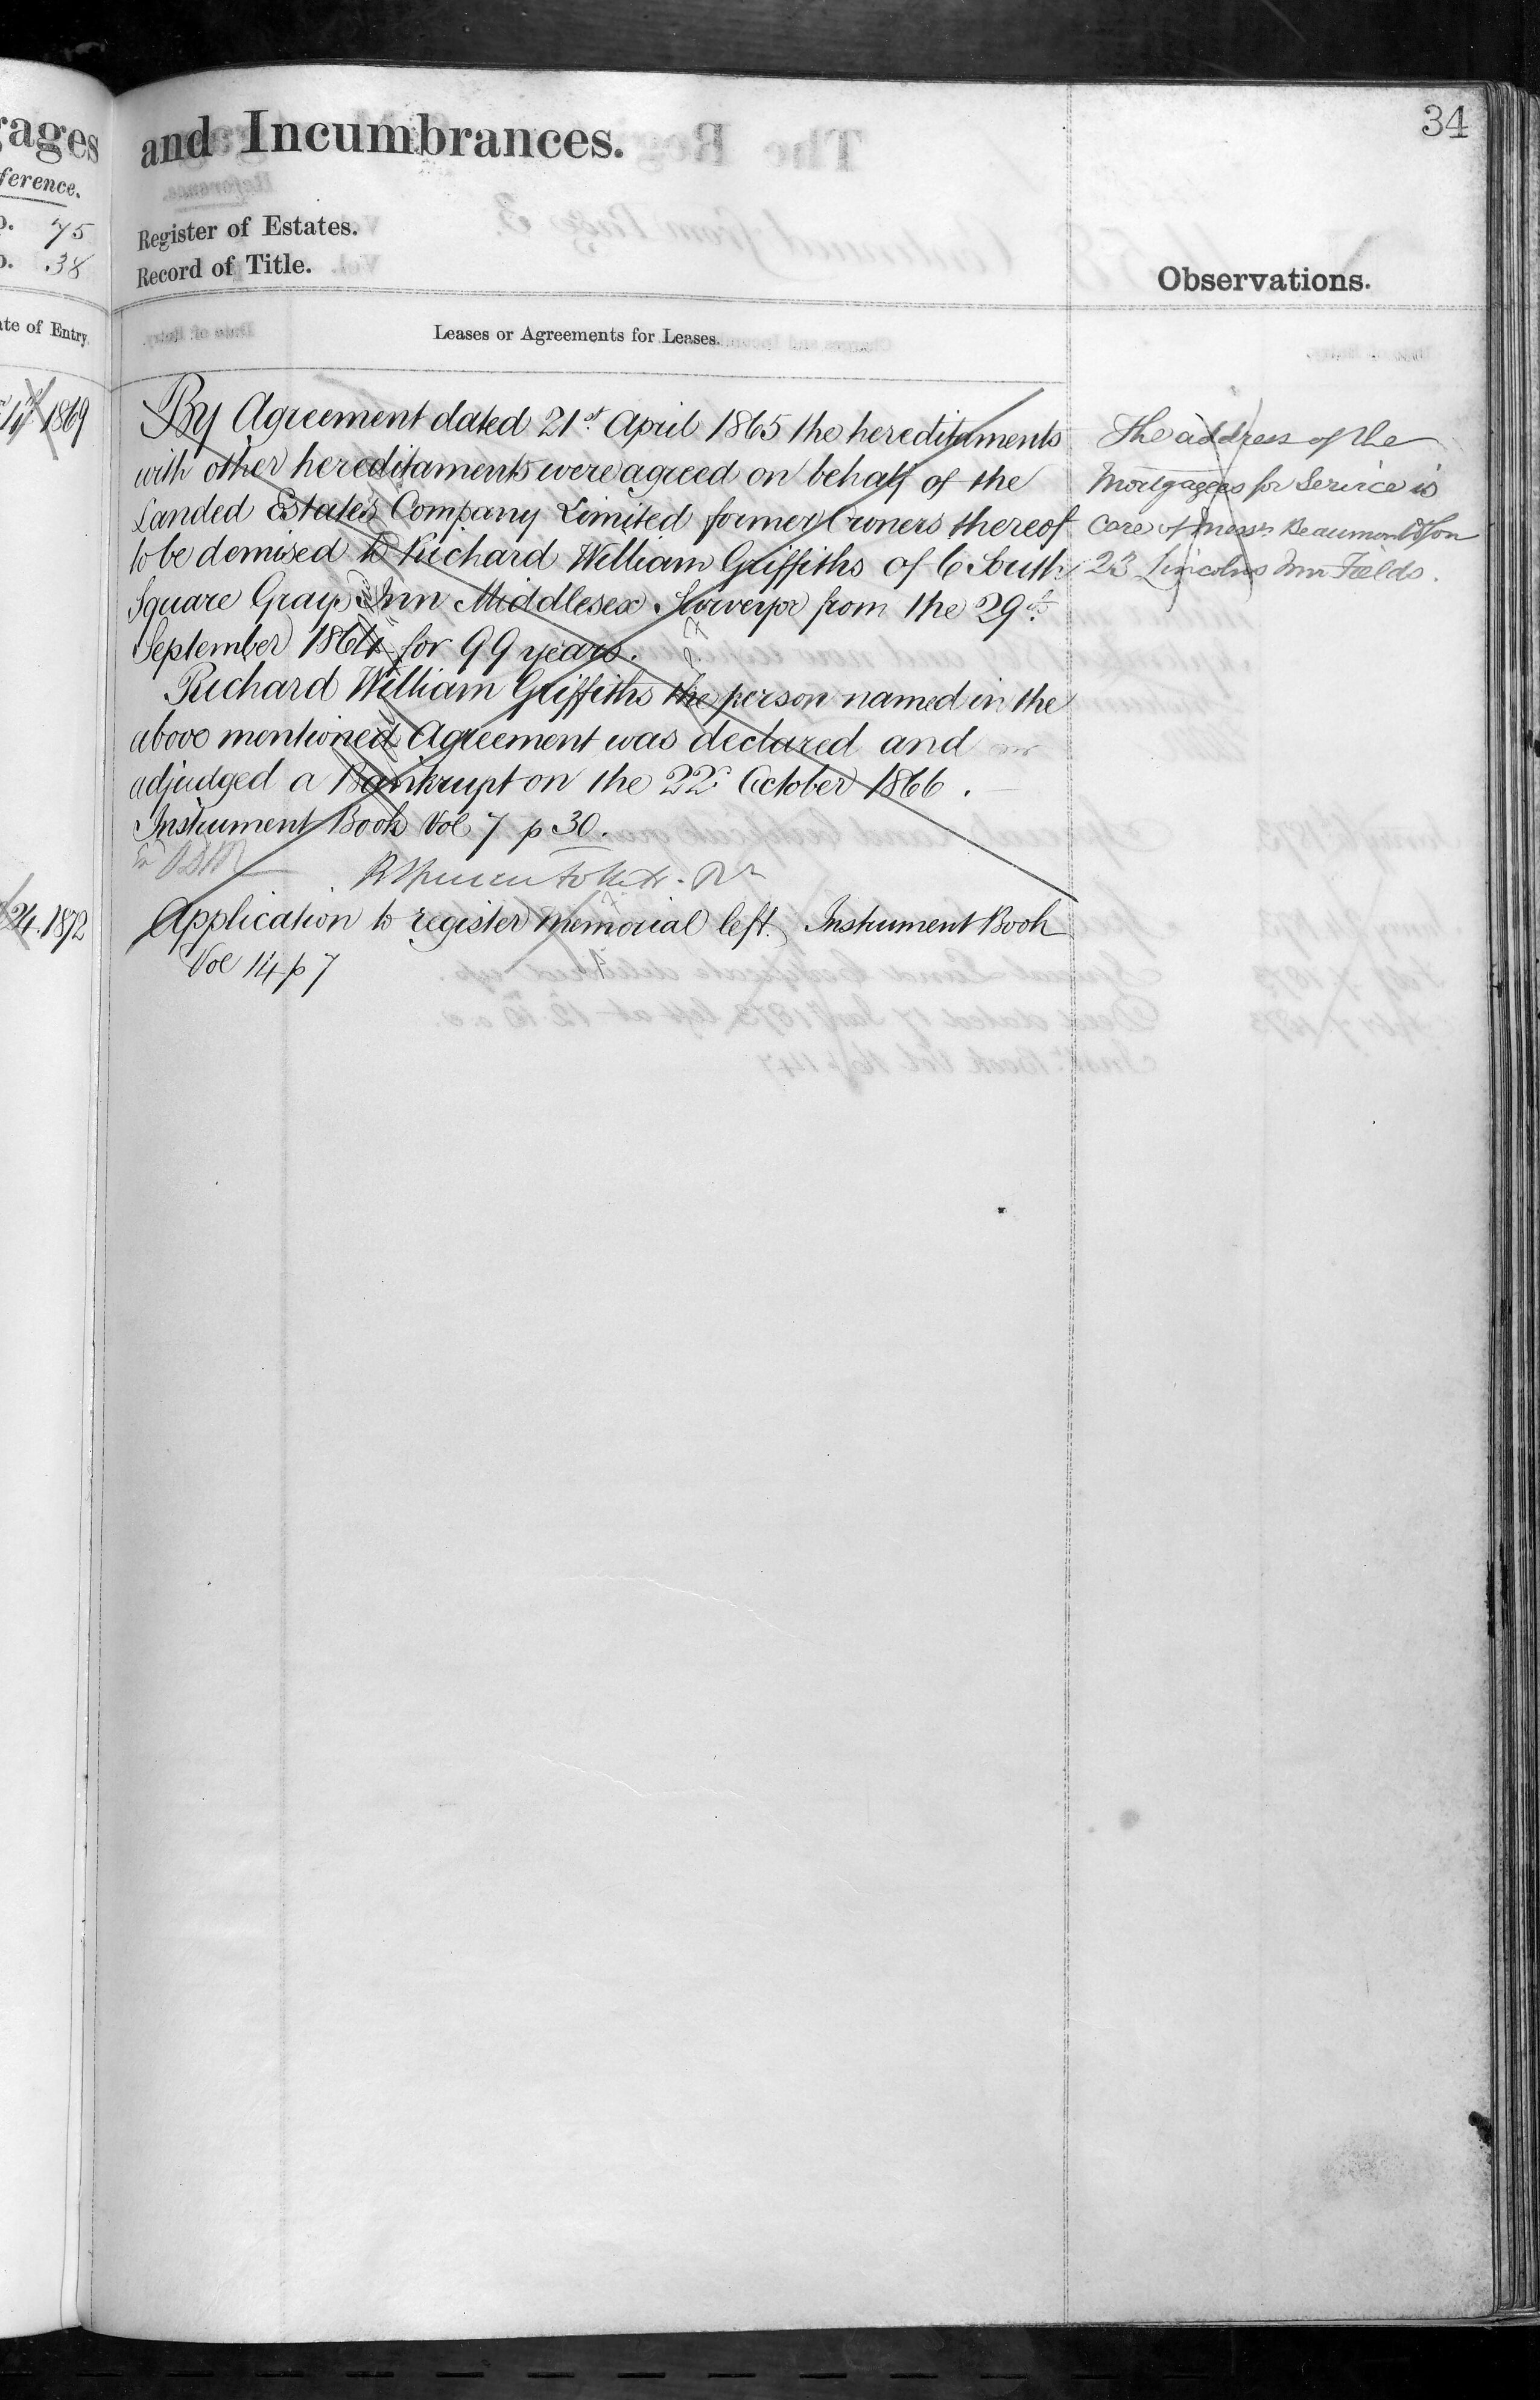 34
and Incumbrances.
Register of Estates.
Record of Title.
Observations.
Leases or Agreements for Leases.
By Agreement dated 21st April 1865 the hereditaments
with other hereditaments were agreed on behalf of the
Landed Estates Company Limited former Owners thereof
to be demised to Richard William Griffiths of 6 South
Square Grays Inn Middlesex Surveyor from the 29th
September 1864 for 99 years.
Richard William Griffiths the person named in the
above mentioned Agreement was declared and
adjudged a Bankrupt on the 22d October 1866.
Instrument Book Vol 7 p 30.
Application to register memorial left. Instrument Book
Vol 14 p 7
The address of the
Mortgagees for Service is
care of Messrs Beaumont & Son
23 Lincolns Inn Fields.
rages
ference.
75
38
ate of Entry.
1869
24. 1872